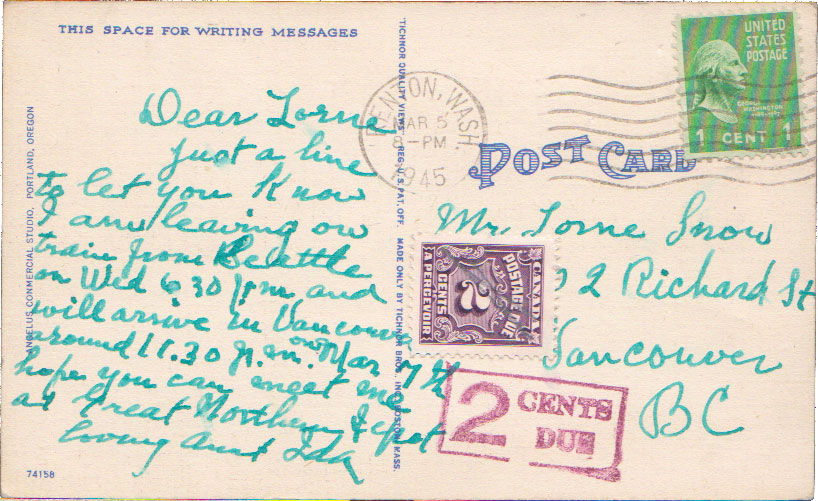 THIS SPACE FOR WRITING MESSAGES
Dear Lorne
just a line
to let you know
I am leaving on
train from Seattle
on Wed 6 30 p.m. and
will arrive in Vancouver
around 11.30 p.m. on Mar 7th
hope you can meet me
at Great Northern depot
loving Aunt Ida
74158
ANGELUS COMMERCIAL STUDIO, PORTLAND, OREGON
TICHNOR QUALITY VIEWS REG. U. S. PAT. OFF. MADE ONLY BY TICHNOR BROS., INC., BOSTON, MASS.
RENTON, WASH.
MAR 5
8-PM
1945
UNITED
STATES
POSTAGE
GEORGE
WASHINGTON
1 CENT 1
POST CARD
Mr. Lorne Snow
2 Richard St
Vancouver
BC
CANADA
POSTAGE DUE
2
CENTS
A PERCEVOIR
2 CENTS
DUE